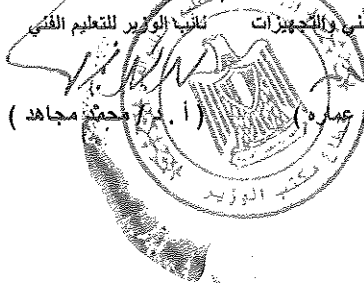 ني والتجهيزات نائب الوزير للتعليم الفني
عماره ) ( أ . د / محمد مجاهد )
مكتب الوزير